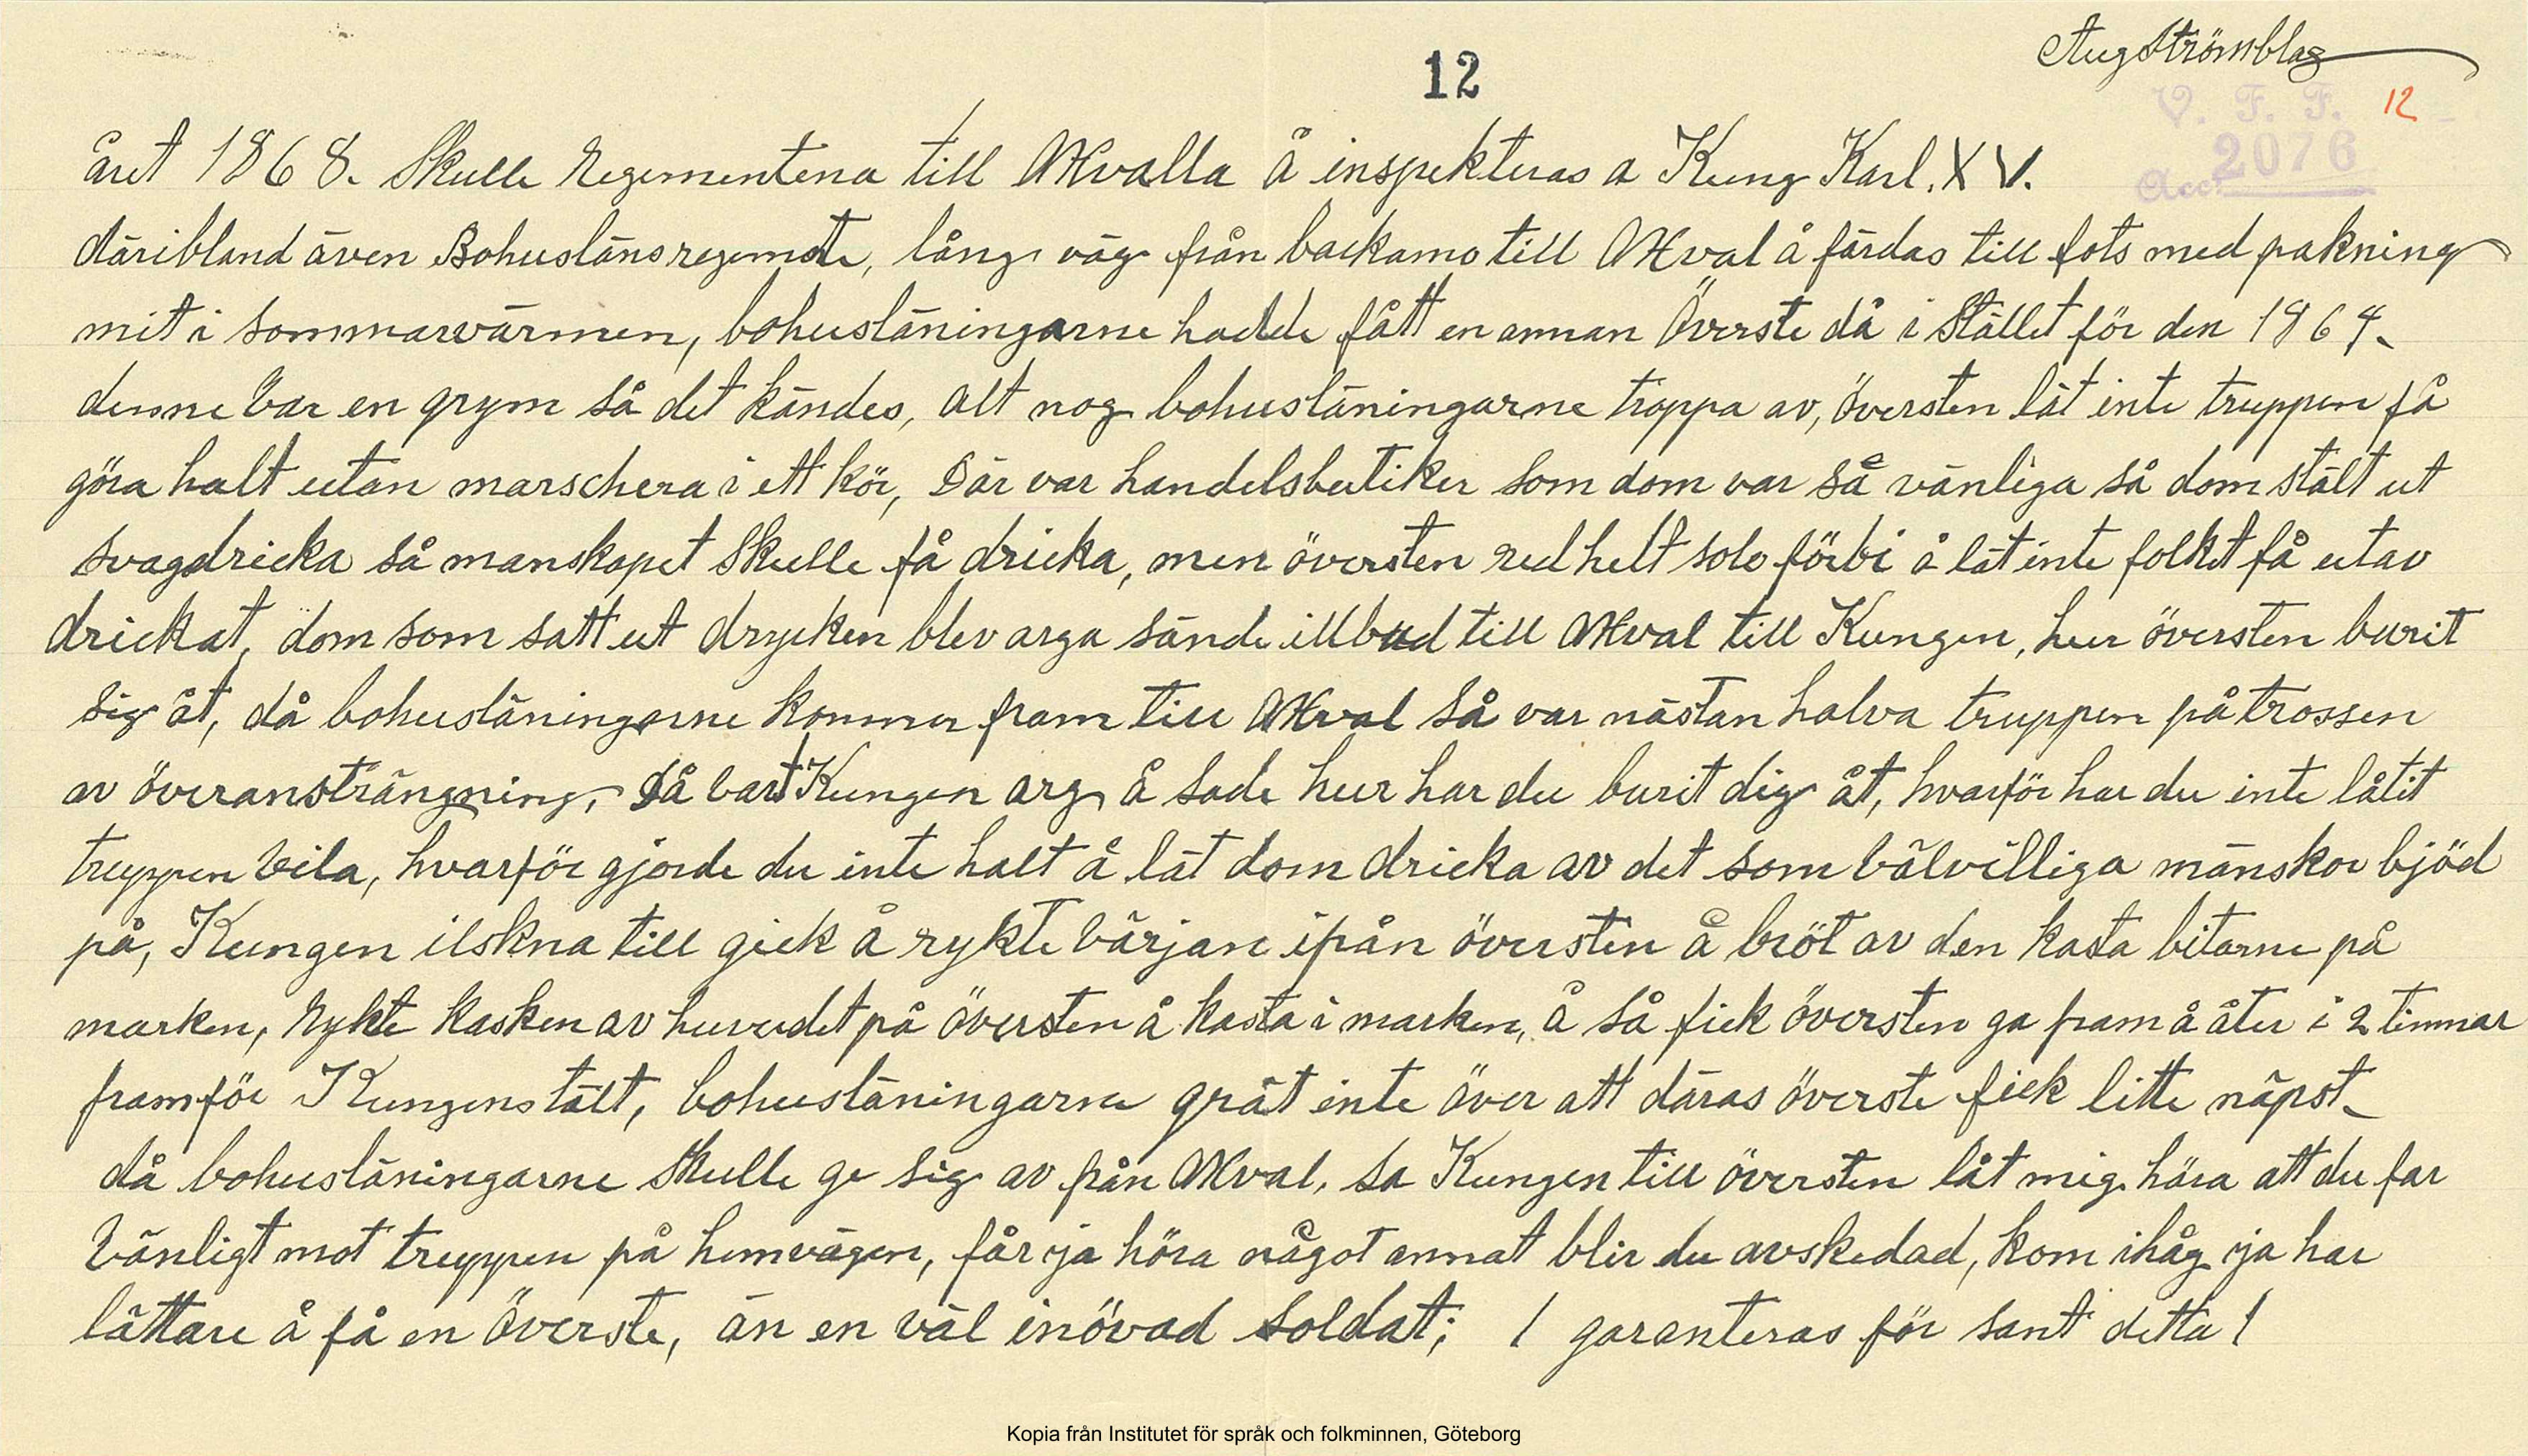 Aug Strömblag
12
V. F. F. 12
Acc. 2076
året 1868. Skulle Regementena till Axvalla å inspekteras a Kung Karl. XV.
däribland även Bohusläns regemete, lång väg från backamo till Axval å färdas till fots med pakning
mit i sommarvärmen, bohusläningarne hadde fått en annan Överste då i Stället för den 1864.
denne var en grym så det kändes, alt nog bohusläningarne troppa av, översten lät inte truppen få
göra halt utan marschera i ett kör, Där var handelsbutiker som dom var så vänliga så dom stält ut
svagdricka så manskapet Skulle få dricka, men översten red helt solo förbi å lät inte folket få utav
drickat, dom som satt ut drycken blev arga sände illbud till Axval till Kungen, hur översten burit
sig åt, då bohusläningarne kommer fram till Axval så var nästan halva truppen på trossen
av överansträngning, Då vart Kungen arg å sade hur har du burit dig åt, hvarför har du inte låtit
truppen vila, hvarför gjorde du inte halt å lät dom dricka av det som välvilliga mänskor bjöd
på, Kungen ilskna till gick å rykte värjan ifrån översten å bröt av den kasta bitarne på
marken, Rykte kasken av huvudet på översten å kasta i marken, å så fick översten ga fram å åter i 2 timmar
framför Kungens tält, bohusläningarne grät inte över att däras överste fick litte näpst.
då bohusläningarne skulle ge sig av från Axval, sa Kungen till översten låt mig höra att du far
vänligt mot truppen på hemvägen, får ja höra något annat blir du avskedad, kom ihåg ja har
lättare å få en Överste, än en väl inövad soldat; ( garanteras för sant detta (
Kopia från Institutet för språk och folkminnen, Göteborg